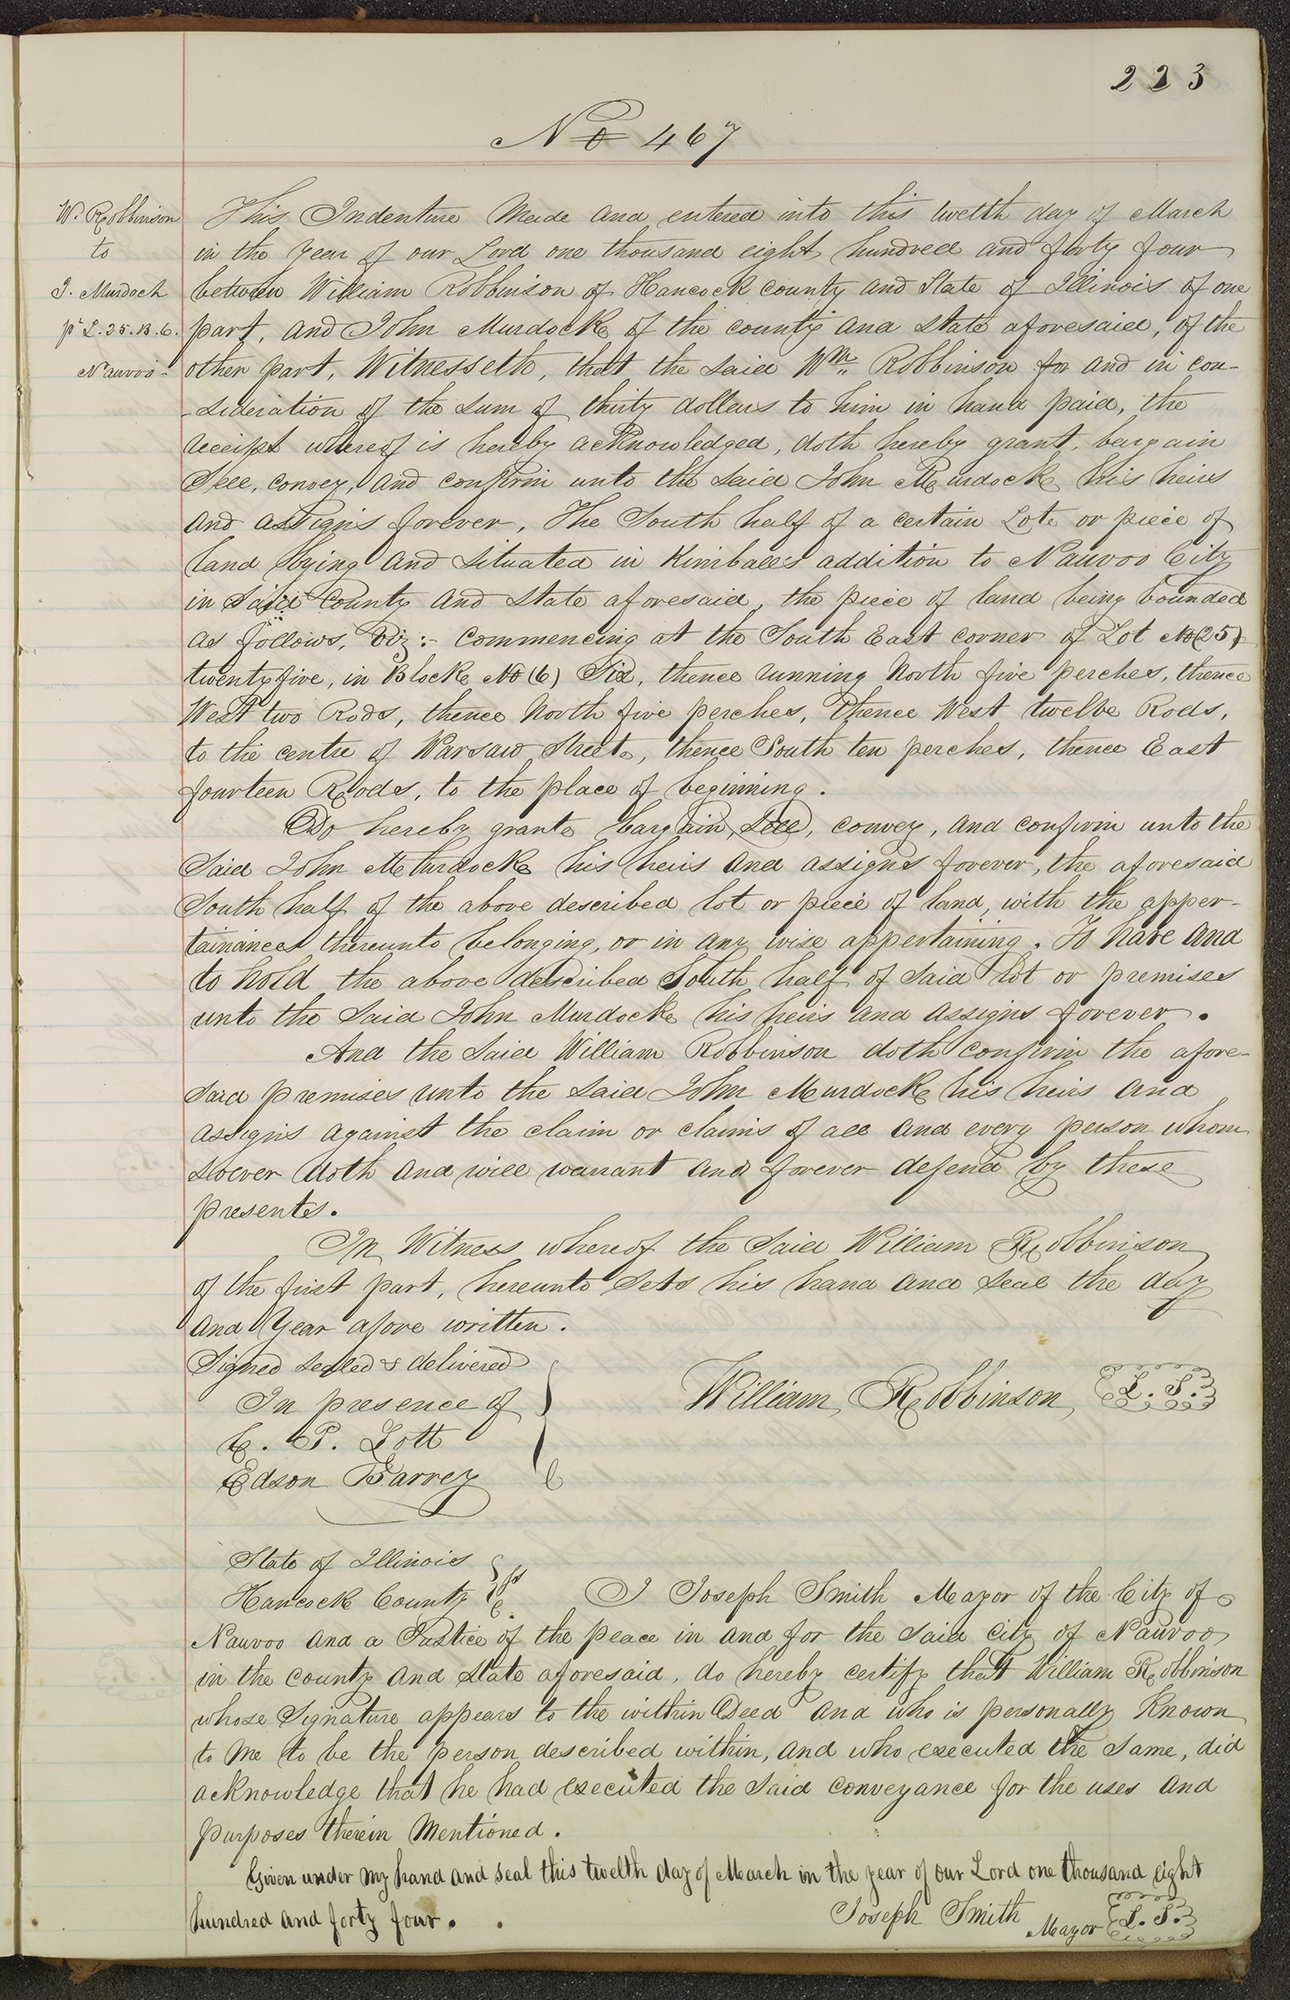 223
No 467
W. Robbinson
to
J. Murdock
pt L. 25. B. 6.
Nauvoo
This Indenture Made and entered into this twelth day of March
in the year of our Lord one thousand eight hundred and forty four
between William Robbinson of Hancock county and State of Illinois of one
part, and John Murdock of the county and state aforesaid, of the
other part, Witnesseth, that the said Wm. Robbinson for and in con-
-sideration of the sum of thirty dollars to him in hand paid, the
receipt whereof is hereby acknowledged, doth hereby grant, bargain
Sell, convey, and confirm unto the said John Murdock his heirs
and assigns forever, The South half of a certain Lot or piece of
land lying and situated in Kimball's addition to Nauvoo City
in said County and state aforesaid, the piece of land being bounded
as follows, viz:- commencing at the South East corner of Lot No (25)
twenty five, in Block No (6) Six, thence running North five perches, thence
West two Rods, thence North five perches, thence West twelve Rods,
to the centre of Warsaw Street, thence South ten perches, thence East
fourteen Rods, to the place of beginning.
Do hereby grant bargain, Sell, convey, and confirm unto the
Said John Murdock his heirs and assigns forever, the aforesaid
South half of the above described lot or piece of land, with the apper-
tainances thereunto belonging, or in any wise appertaining. To have and
to hold the above described South half of said lot or premises
unto the said John Murdock his heirs and assigns forever.
And the said William Robbinson doth confirm the afore-
said premises unto the said John Murdock his heirs and
assigns against the claim or claims of all and every person whom
soever doth and will warrant and forever defend by these
presents.
In Witness whereof the said William Robbinson
of the first part, hereunto sets his hand and seal the day
and Year afore written.
Signed sealed & delivered
In presence of
C. P. Lott
Edson Barney
William Robbinson, L. S.
State of Illinois
Hancock County } ss I Joseph Smith Mayor of the City of
Nauvoo and a Justice of the peace in and for the said city of Nauvoo
in the county and state aforesaid, do hereby certify that William Robbinson
whose Signature appears to the within Deed and who is personally Known
to me to be the person described within, and who executed the same, did
acknowledge that he had executed the said conveyance for the uses and
purposes therein mentioned.
Given under my hand and seal this twelth day of March in the year of our Lord one thousand eight
hundred and forty four.
Joseph Smith Mayor L. S.